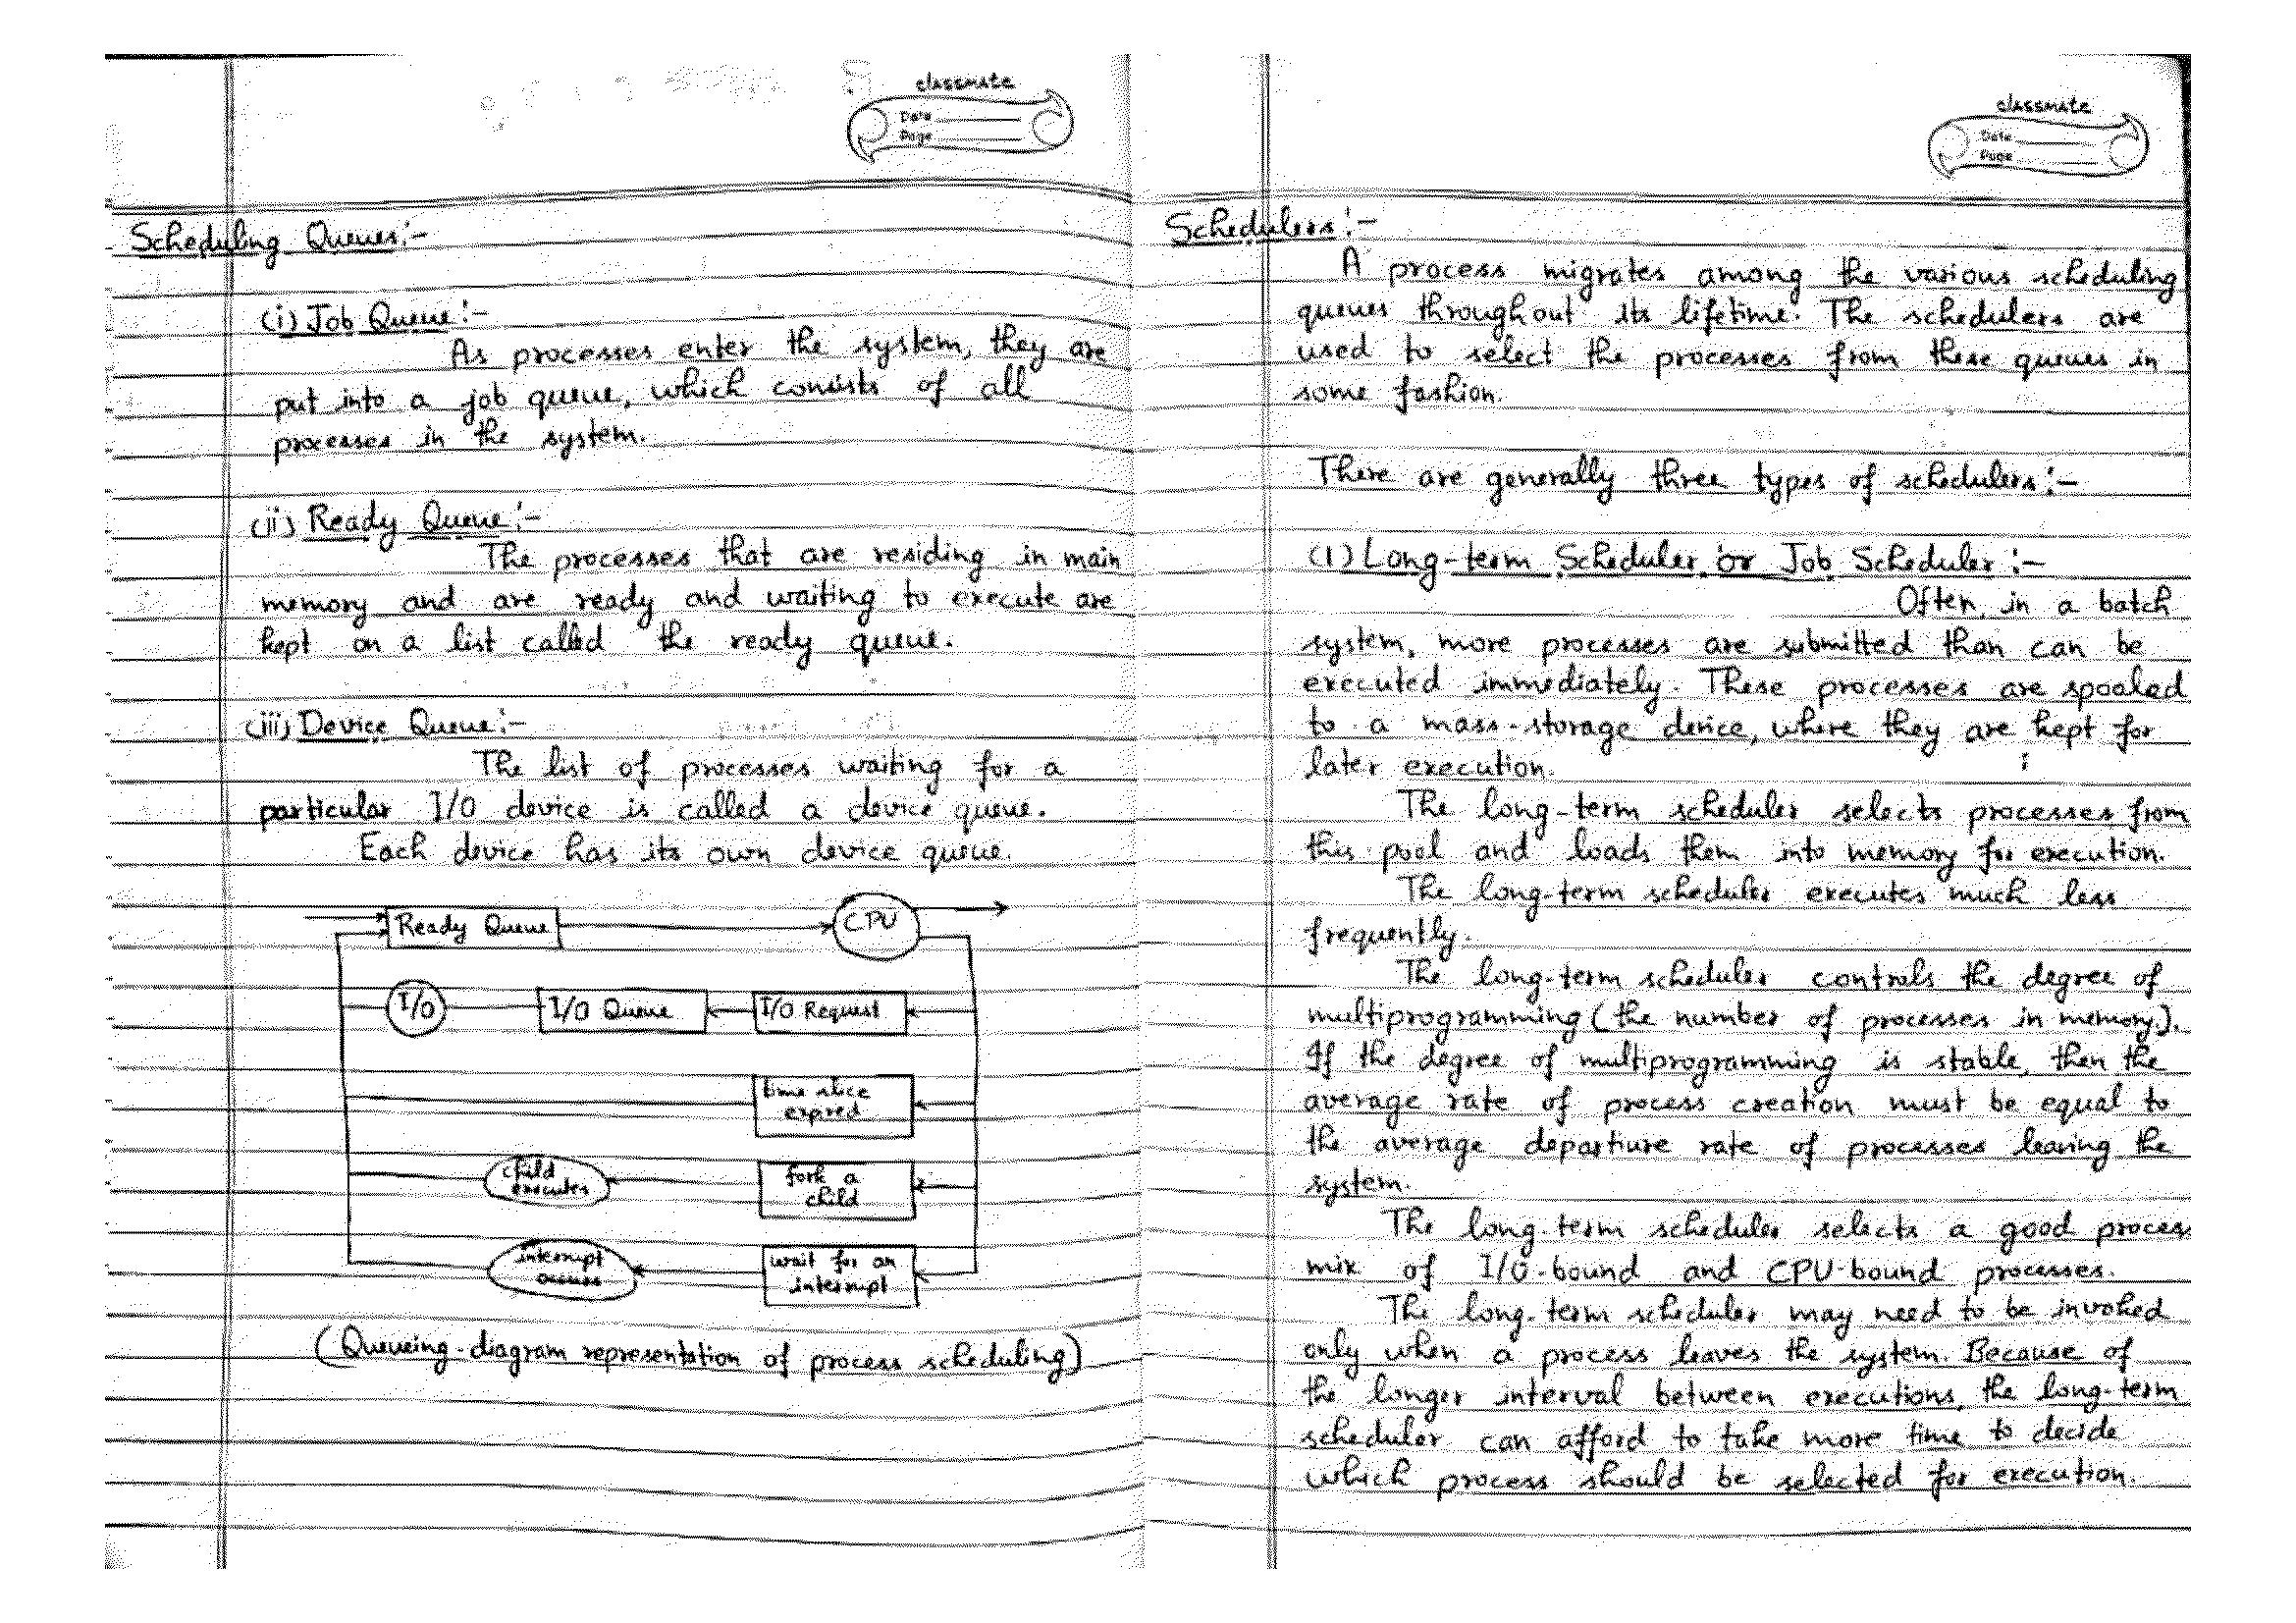 classmate
Date
Page
Scheduling Queues:-
(i) Job Queue:-
As processes enter the system, they are
put into a job queue, which consists of all
processes in the system.
(ii) Ready Queue:-
The processes that are residing in main
memory and are ready and waiting to execute are
kept on a list called the ready queue.
(iii) Device Queue:-
The list of processes waiting for a
particular I/O device is called a device queue.
Each device has its own device queue.
Ready Queue
CPU
I/O
I/O Queue
I/O Request
time slice
expired
child
executes
fork a
child
interrupt
occurs
wait for an
interrupt
(Queueing-diagram representation of process scheduling)
classmate
Date
Page
Schedulers:-
A process migrates among the various scheduling
queues throughout its lifetime. The schedulers are
used to select the processes from these queues in
some fashion.
There are generally three types of schedulers:-
(1) Long-term Scheduler or Job Scheduler:-
Often, in a batch
system, more processes are submitted than can be
executed immediately. These processes are spooled
to a mass-storage device, where they are kept for
later execution.
The long-term scheduler selects processes from
this pool and loads them into memory for execution.
The long-term scheduler executes much less
frequently.
The long-term scheduler controls the degree of
multiprogramming (the number of processes in memory).
If the degree of multiprogramming is stable, then the
average rate of process creation must be equal to
the average departure rate of processes leaving the
system.
The long-term scheduler selects a good process
mix of I/O-bound and CPU-bound processes.
The long-term scheduler may need to be invoked
only when a process leaves the system. Because of
the longer interval between executions, the long-term
scheduler can afford to take more time to decide
which process should be selected for execution.